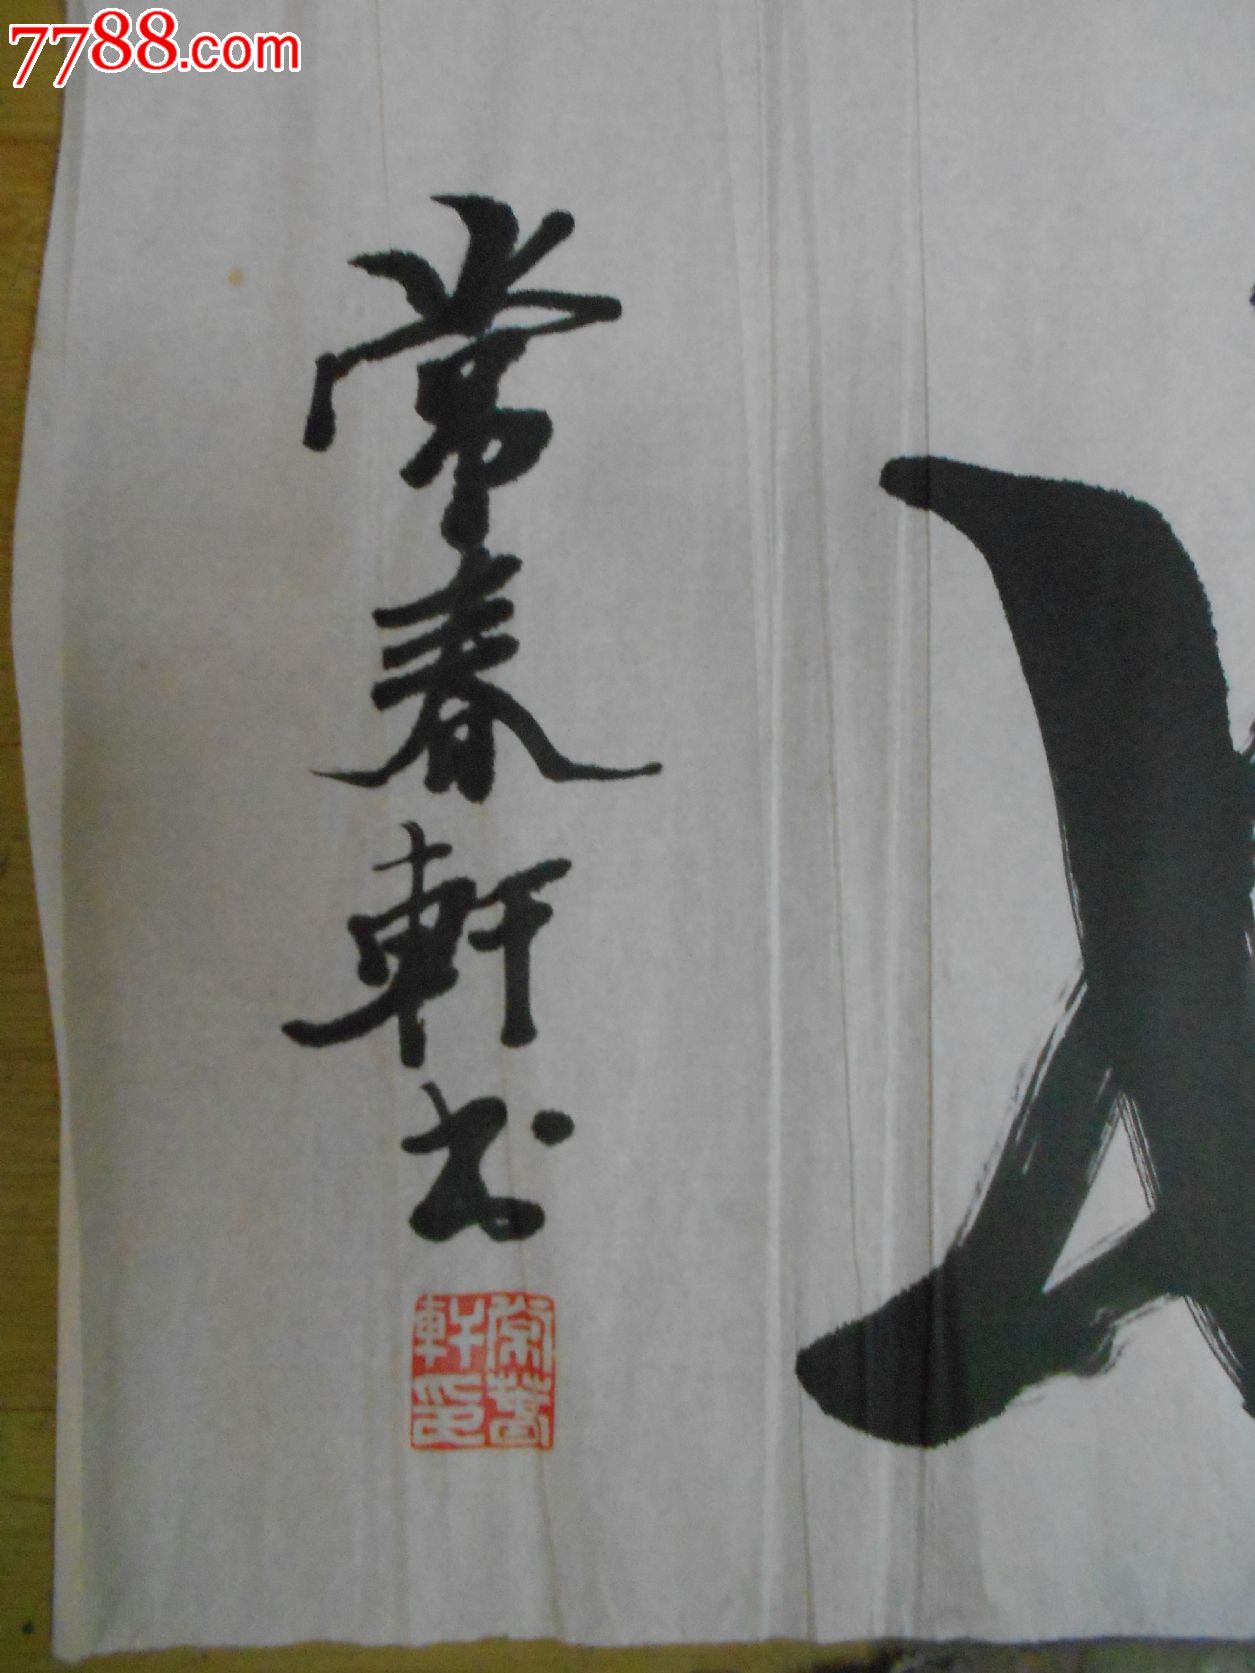 7788.com
常春軒书
常春
軒印